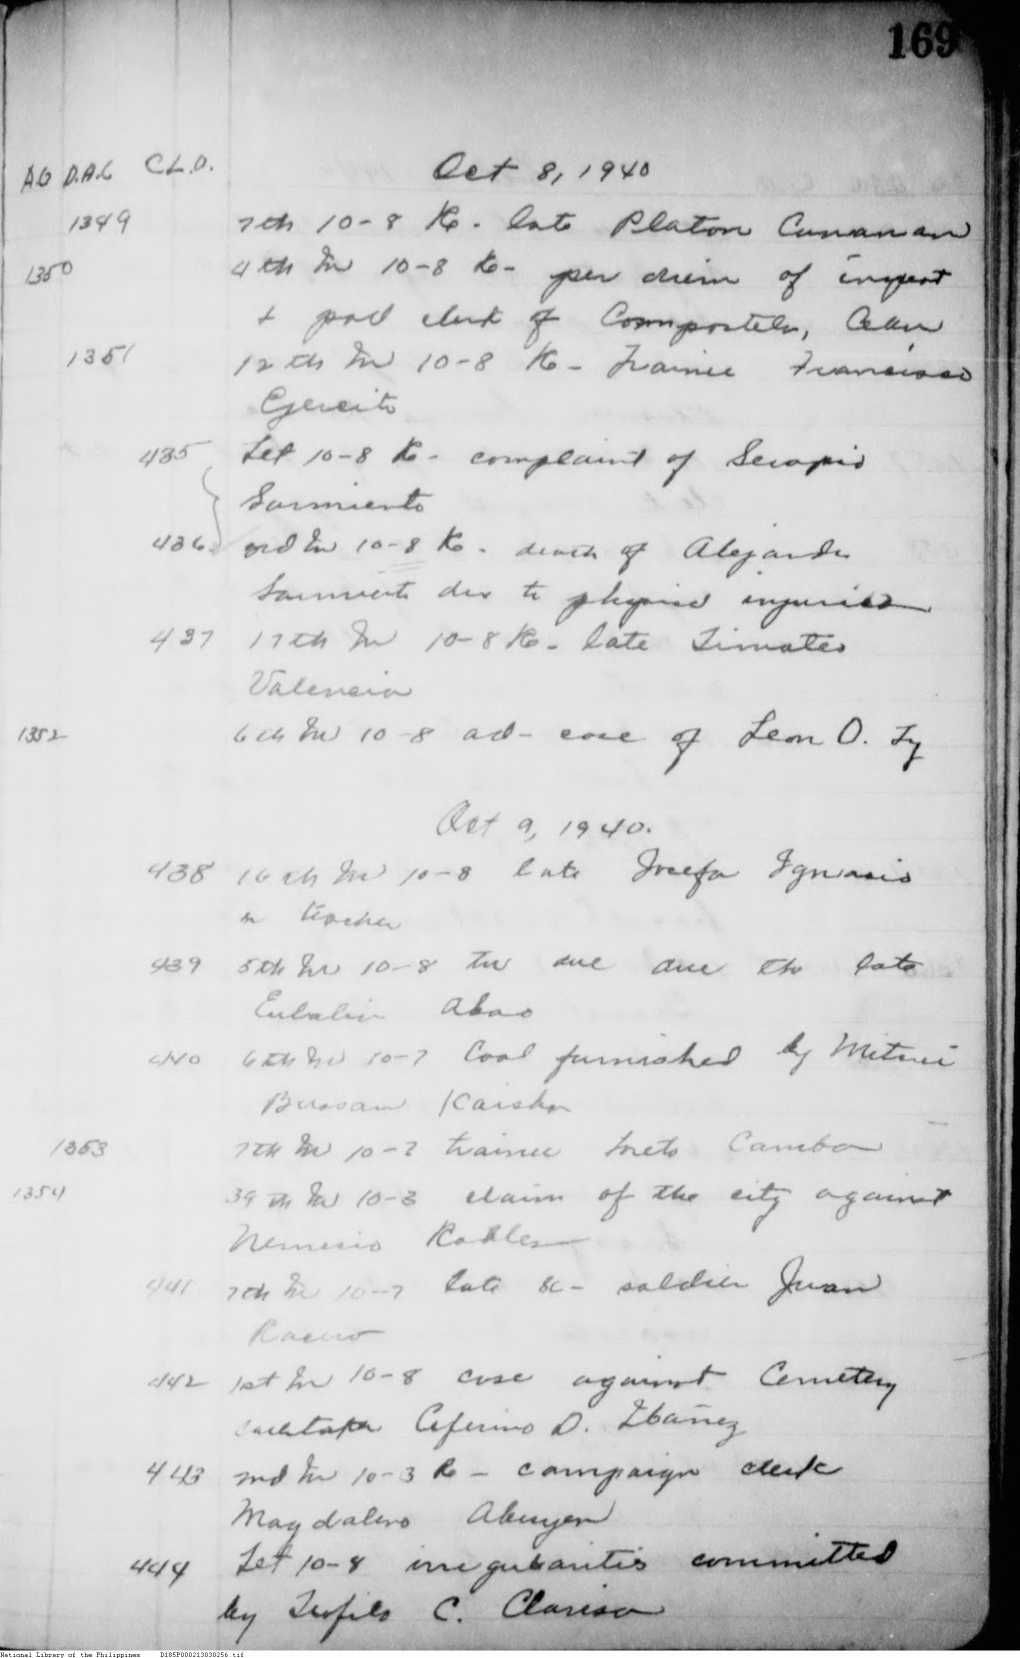 169
A.G D.A.G C.L.D. Oct 8, 1940
1349 7th 10-8 Re. late Platon Cunanan
1350 4th In 10-8 Re- per diem of inspect
+ poll clerk of Compostela, Cebu
1351 12th In 10-8 Re - Trainee Francisco
Ejercito
435 Let 10-8 Re - complaint of Serapio
Sarmiento
436 2nd In 10-8 Re. death of Alejandro
Sarmiento due to physical injuries
437 17th In 10-8 Re. late Timoteo
Valencia
1352 6th In 10-8 ad- case of Leon O. Ty
Oct 9, 1940.
438 16th In 10-8 late Josefa Ignacio
a teacher
439 5th In 10-8 due the late
Eulalia Abao
440 6th In 10-7 Coal furnished by Mitsui
Bussan Kaisha
1353 7th In 10-7 trainee Loreto Camba
1354 39th In 10-3 claim of the city against
Nemesio Robles
441 7th In 10-7 late sc- soldier Juan
Racero
442 1st In 10-8 case against Cemetery
caretaker Ceferino D. Ibañez
443 2nd In 10-3 Re - campaign clerk
Magdaleno Abuyen
444 Let 10-8 irregularities committed
by Teofilo C. Clarisa
National Library of the Philippines D185P000213030256.tif